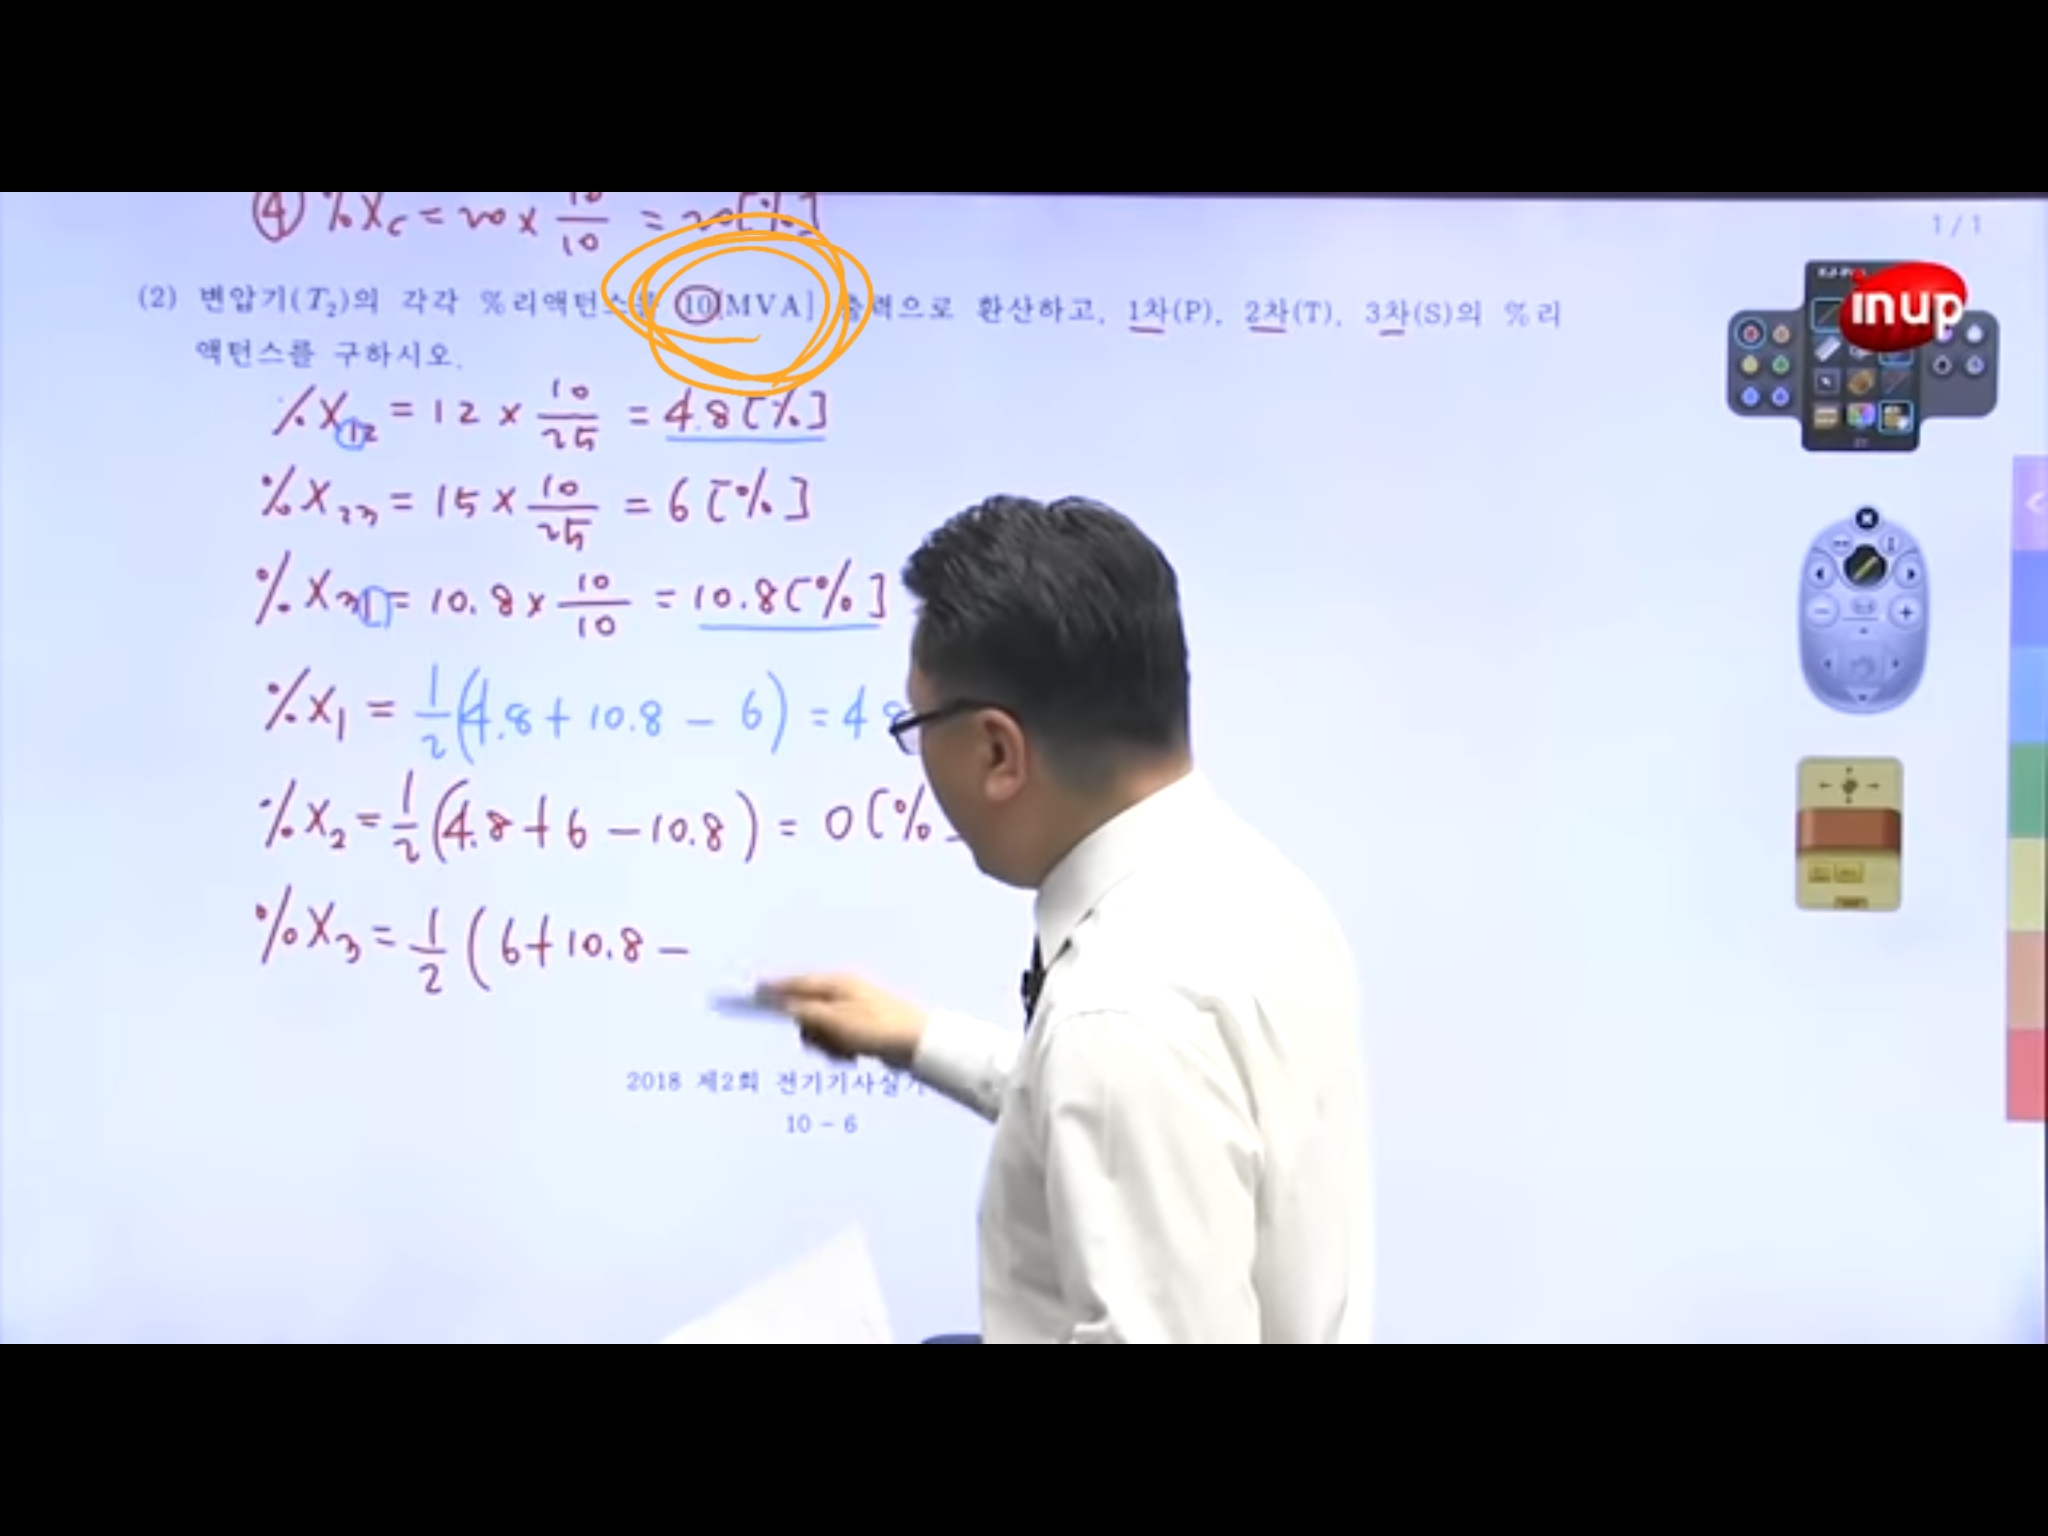 ④ %X_C = 20 × 10/10 = 20[%]
1 / 1
inup
(2) 변압기(T₂)의 각각 %리액턴스를 10[MVA] 출력으로 환산하고, 1차(P), 2차(T), 3차(S)의 %리
액턴스를 구하시오.
%X₁₂ = 12 × 10/25 = 4.8[%]
%X₂₃ = 15 × 10/25 = 6[%]
%X₃₁ = 10.8 × 10/10 = 10.8[%]
%X₁ = 1/2(4.8 + 10.8 - 6) = 4.8
%X₂ = 1/2(4.8 + 6 - 10.8) = 0[%]
%X₃ = 1/2(6 + 10.8 -
2018 제2회 전기기사실기
10 - 6